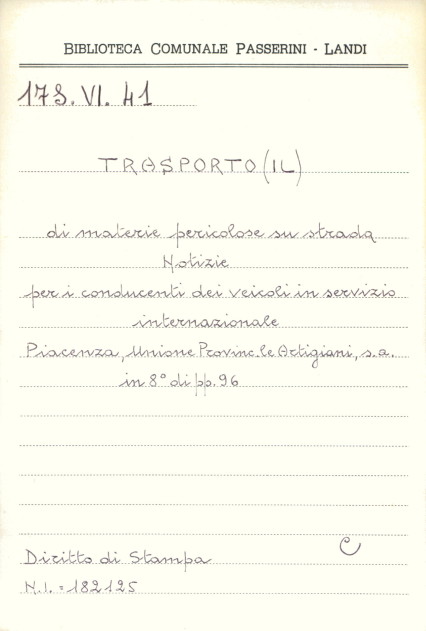 BIBLIOTECA COMUNALE PASSERINI - LANDI
173. VI. 41
TRASPORTO (IL)
di materie pericolose su strada
Notizie
per i conducenti dei veicoli in servizio
internazionale
Piacenza, Unione Provinc.le Artigiani, s.a.
in 8° di pp. 96
C
Diritto di Stampa
N.I. = 182125